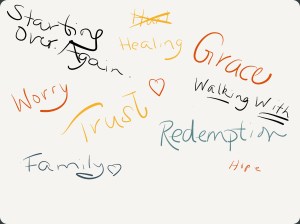 Starting
Over. Again.
Healing
Grace
Worry
Trust
Walking With
Redemption
Family
Hope